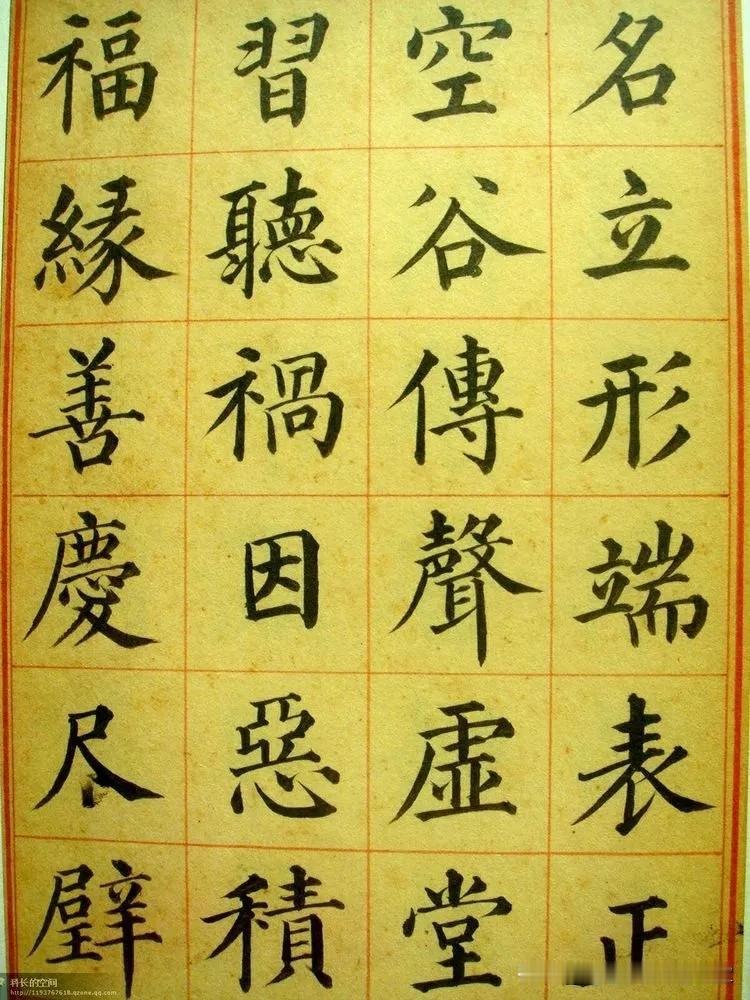 名立形端表正
空谷傳聲虛堂
習聽禍因惡積
福緣善慶尺璧
科长的空间
http://1193767618.qzone.qq.com